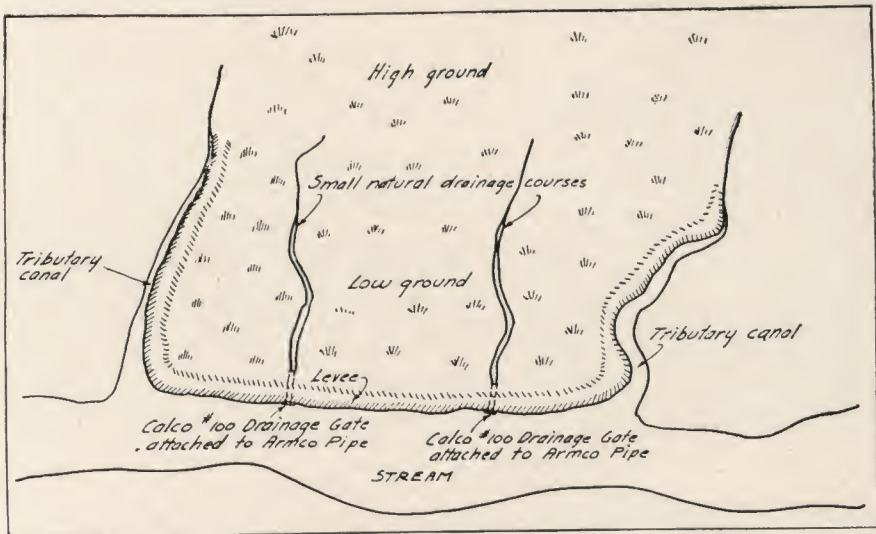 High ground
Small natural drainage courses
Tributary
canal
Low ground
Tributary canal
Levee
Calco #100 Drainage Gate
attached to Armco Pipe
Calco #100 Drainage Gate
attached to Armco Pipe
STREAM